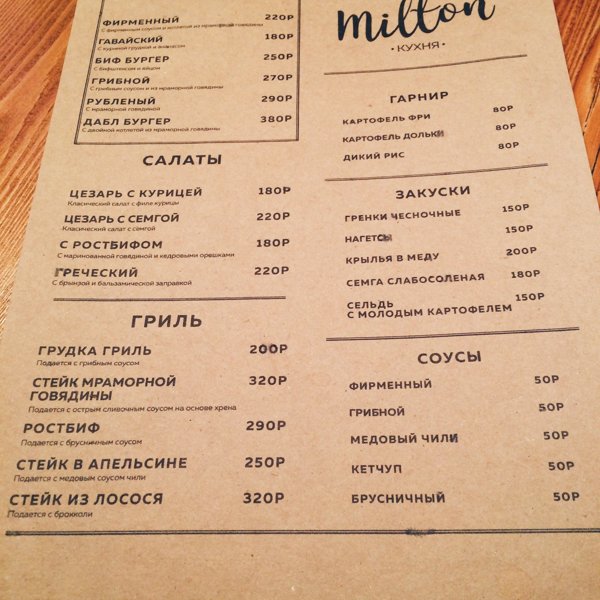 ФИРМЕННЫЙ 220Р
С фирменным соусом и котлетой из мраморной говядины
ГАВАЙСКИЙ 180Р
С куриной грудкой и ананасом
БИФ БУРГЕР 250Р
С бифштексом и яйцом
ГРИБНОЙ 270Р
С грибным соусом и из мраморной говядины
РУБЛЕНЫЙ 290Р
С мраморной говядиной
ДАБЛ БУРГЕР 380Р
С двойной котлетой из мраморной говядины
САЛАТЫ
ЦЕЗАРЬ С КУРИЦЕЙ 180Р
Класический салат с филе курицы
ЦЕЗАРЬ С СЕМГОЙ 220Р
Класический салат с сёмгой
С РОСТБИФОМ 180Р
С маринованной говядиной и кедровыми орешками
ГРЕЧЕСКИЙ 220Р
С брынзой и бальзамической заправкой
ГРИЛЬ
ГРУДКА ГРИЛЬ 200Р
Подается с грибным соусом
СТЕЙК МРАМОРНОЙ 320Р
ГОВЯДИНЫ
Подается с острым сливочным соусом на основе хрена
РОСТБИФ 290Р
Подается с брусничным соусом
СТЕЙК В АПЕЛЬСИНЕ 250Р
Подается с медовым соусом чили
СТЕЙК ИЗ ЛОСОСЯ 320Р
Подается с брокколи
Milton
• КУХНЯ •
ГАРНИР
КАРТОФЕЛЬ ФРИ 80Р
КАРТОФЕЛЬ ДОЛЬКИ 80Р
ДИКИЙ РИС 80Р
ЗАКУСКИ
ГРЕНКИ ЧЕСНОЧНЫЕ 150Р
НАГЕТСЫ 150Р
КРЫЛЬЯ В МЕДУ 200Р
СЕМГА СЛАБОСОЛЕНАЯ 180Р
СЕЛЬДЬ 150Р
С МОЛОДЫМ КАРТОФЕЛЕМ
СОУСЫ
ФИРМЕННЫЙ 50Р
ГРИБНОЙ 50Р
МЕДОВЫЙ ЧИЛИ 50Р
КЕТЧУП 50Р
БРУСНИЧНЫЙ 50Р